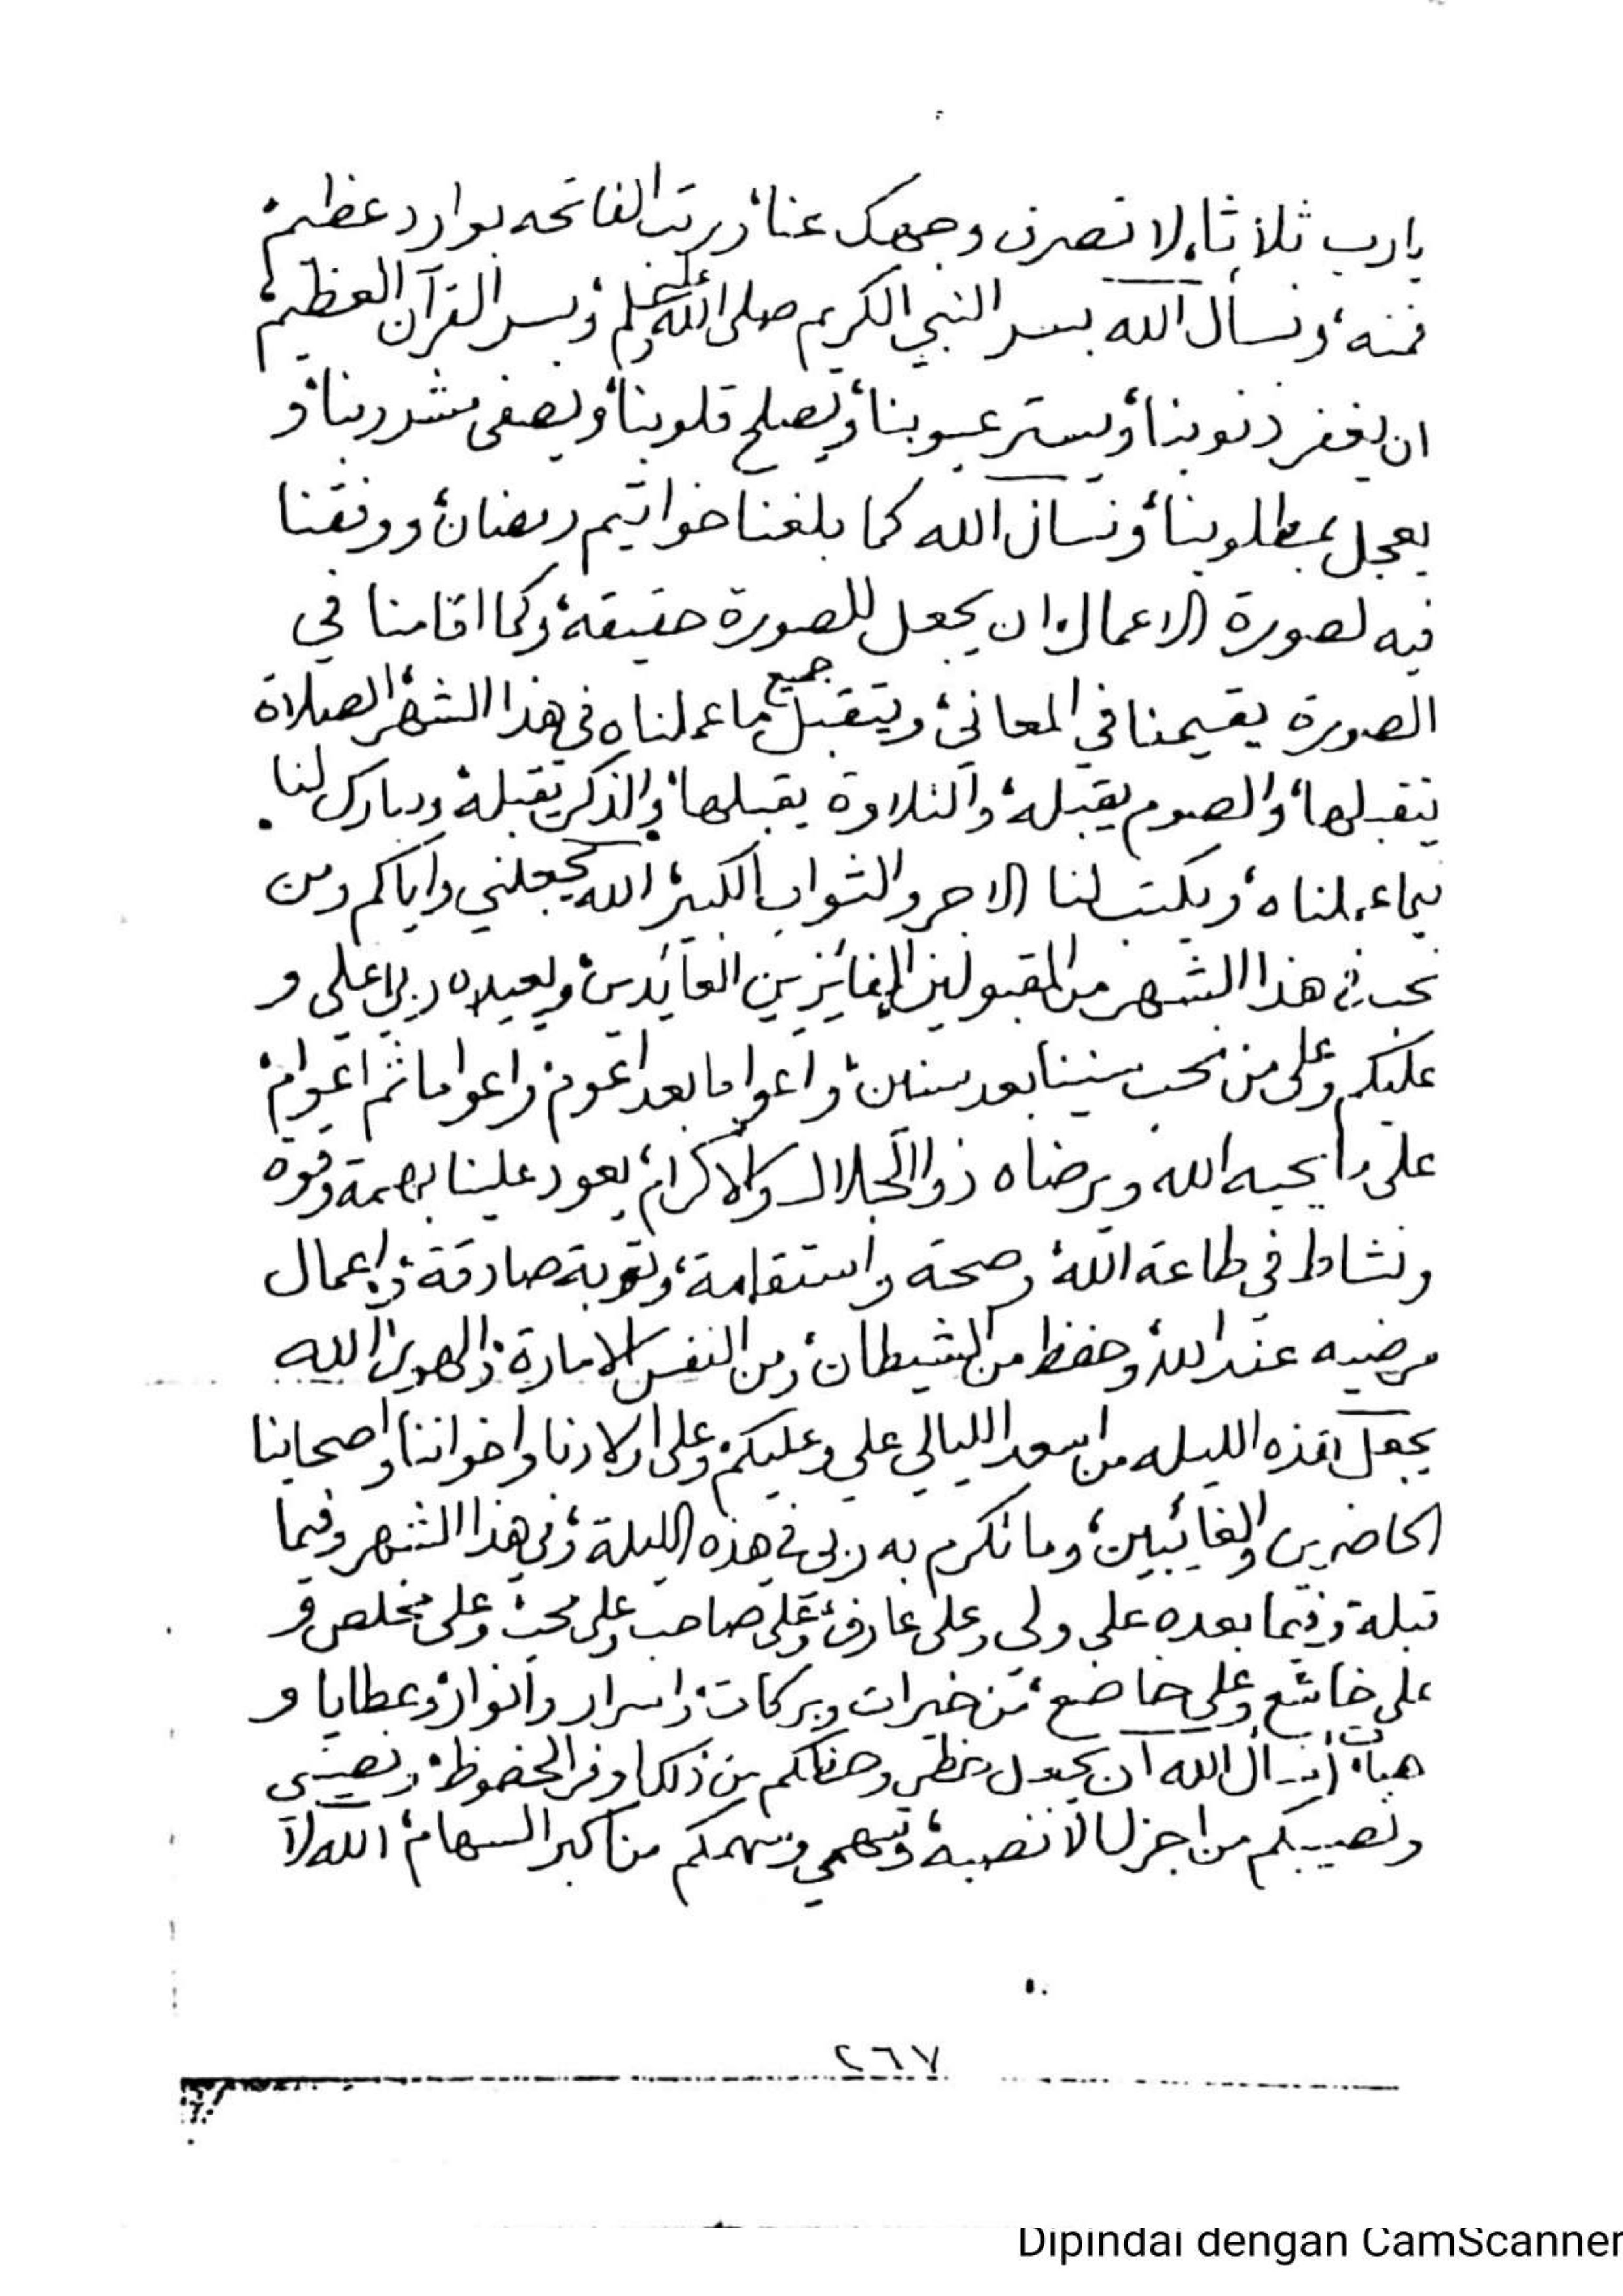 يارب ثلاثا، لا تصرف وجهك عنا، ورتب الفاتحه بوارد عظيم،
فمنه، ونسأل الله بسر النبي الكريم صلى الله عليه وسلم، وبسر القرآن العظيم،
ان يغفر ذنوبنا، ويستر عيوبنا، ويصلح قلوبنا، ويصفى مشروبنا، و
يعجل بمطلوبنا، ونسأل الله كما بلغنا خواتيم رمضان، ووفقنا
فيه لصورة الاعمال، ان يجعل للصورة حقيقة، وكما اقامنا في
الصورة يقيمنا في المعاني، ويتقبل جميع ما عملناه في هذا الشهر، الصلاة
يتقبلها، والصوم يقبله، والتلاوة يقبلها، والذكر يقبله، ويبارك لنا
فيما عملناه، ويكتب لنا الاجر والثواب الكبير، الله يجعلني واياكم ومن
نحب في هذا الشهر من المقبولين الفايزين العائدين، ويعيده ربي علي و
عليكم وعلى من نحب سنينا بعد سنين، واعواما بعد اعوم، واعواما ثم اعوام،
على ما يحبه الله ويرضاه ذوا الجلال والاكرام، يعود علينا بهمة وقوه
ونشاط في طاعة الله، وصحة واستقامة، وتوبة صادقة، واعمال
مرضيه عند الله، وحفظ من الشيطان، ومن النفس الامارة، والهوى، الله
يجعل هذه الليله من اسعد الليالي علي وعليكم، وعلى اولادنا واخواننا واصحابنا
الحاضرين والغائبين، وما تكرم به ربي في هذه الليلة، وفي هذا الشهر وفيما
قبلة وفيما بعده على ولى وعلى عارف، وعلى صاحب وعلى محب، وعلى مخلص و
على خاشع وعلى خاضع، من خيرات وبركات، واسرار وانوار، وعطايا و
هبات، أسأل الله ان يجعل حظي وحظكم من ذلك اوفر الحظوظ، ونصيبي
ونصيبكم من اجزل الانصبة، وسهمي وسهمكم من اكبر السهام، الله لا
٢٦٧
Dipindai dengan CamScanner